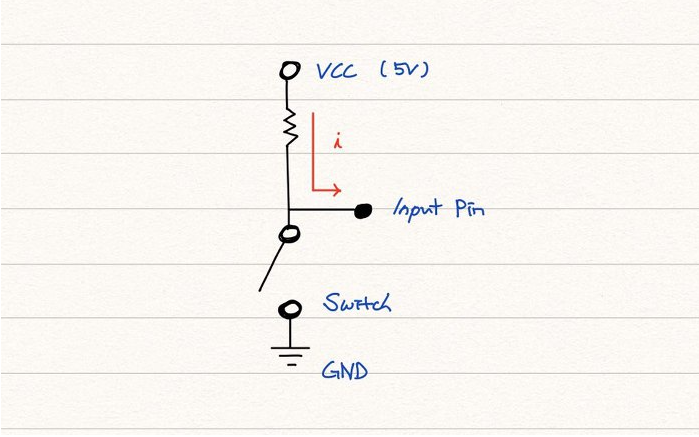 VCC (5V)
i
Input Pin
Switch
GND